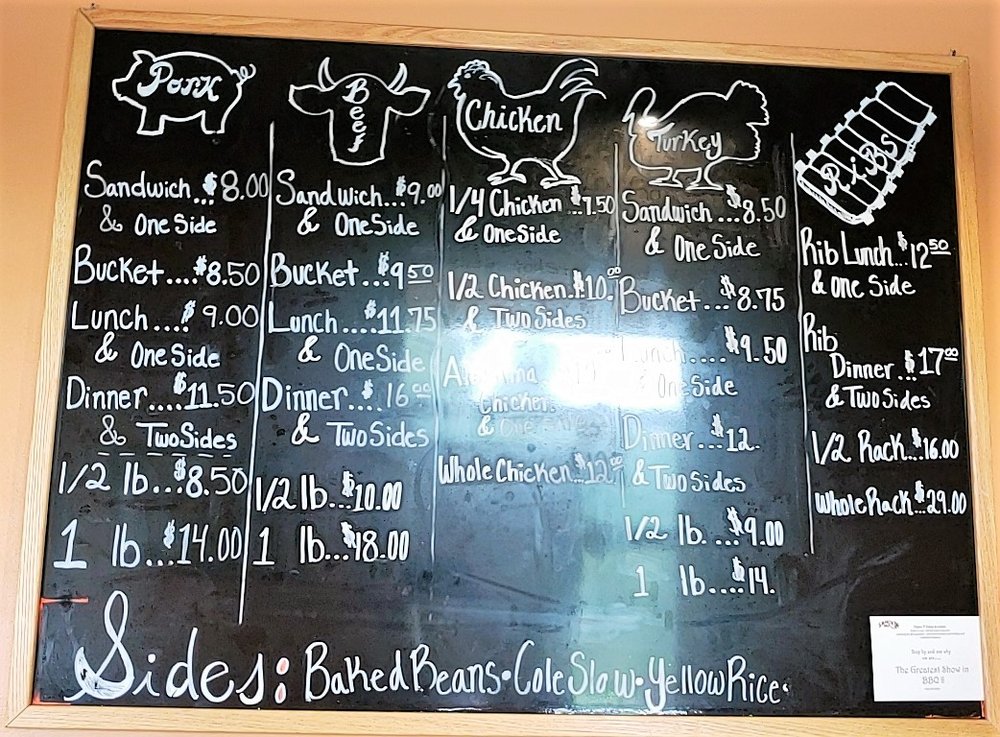 Pork
Sandwich..$8.00
& One Side
Bucket....$8.50
Lunch....$9.00
& One Side
Dinner....$11.50
& Two Sides
1/2 lb...$8.50
1 lb...$14.00
Beef
Sandwich...$9.00
& One Side
Bucket...$9.50
Lunch....$11.75
& One Side
Dinner...$16.00
& Two Sides
1/2 lb...$10.00
1 lb...$18.00
Chicken
1/4 Chicken..$7.50
& One Side
1/2 Chicken..$10.00
& Two Sides
Chicken
Whole Chicken...$12.00
Turkey
Sandwich...$8.50
& One Side
Bucket...$8.75
Lunch....$9.50
& One Side
Dinner...$12.
& Two Sides
1/2 lb. ...$9.00
1 lb....$14.
Ribs
Rib Lunch..$12.50
& One Side
Rib
Dinner..$17.00
& Two Sides
1/2 Rack..$16.00
Whole Rack..$29.00
Sides: Baked Beans • Cole Slaw • Yellow Rice
Step up and see why
The Greatest Show in
BBQ!!